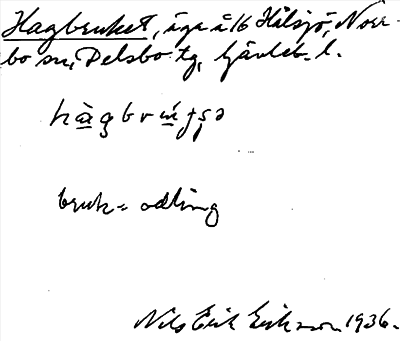 Hagbruket, äga å 16 Hålsjö, Norr-
bo sn, Delsbo tg, Gävleb. l.
bruk = odling
Nils Erik Eriksson 1936.